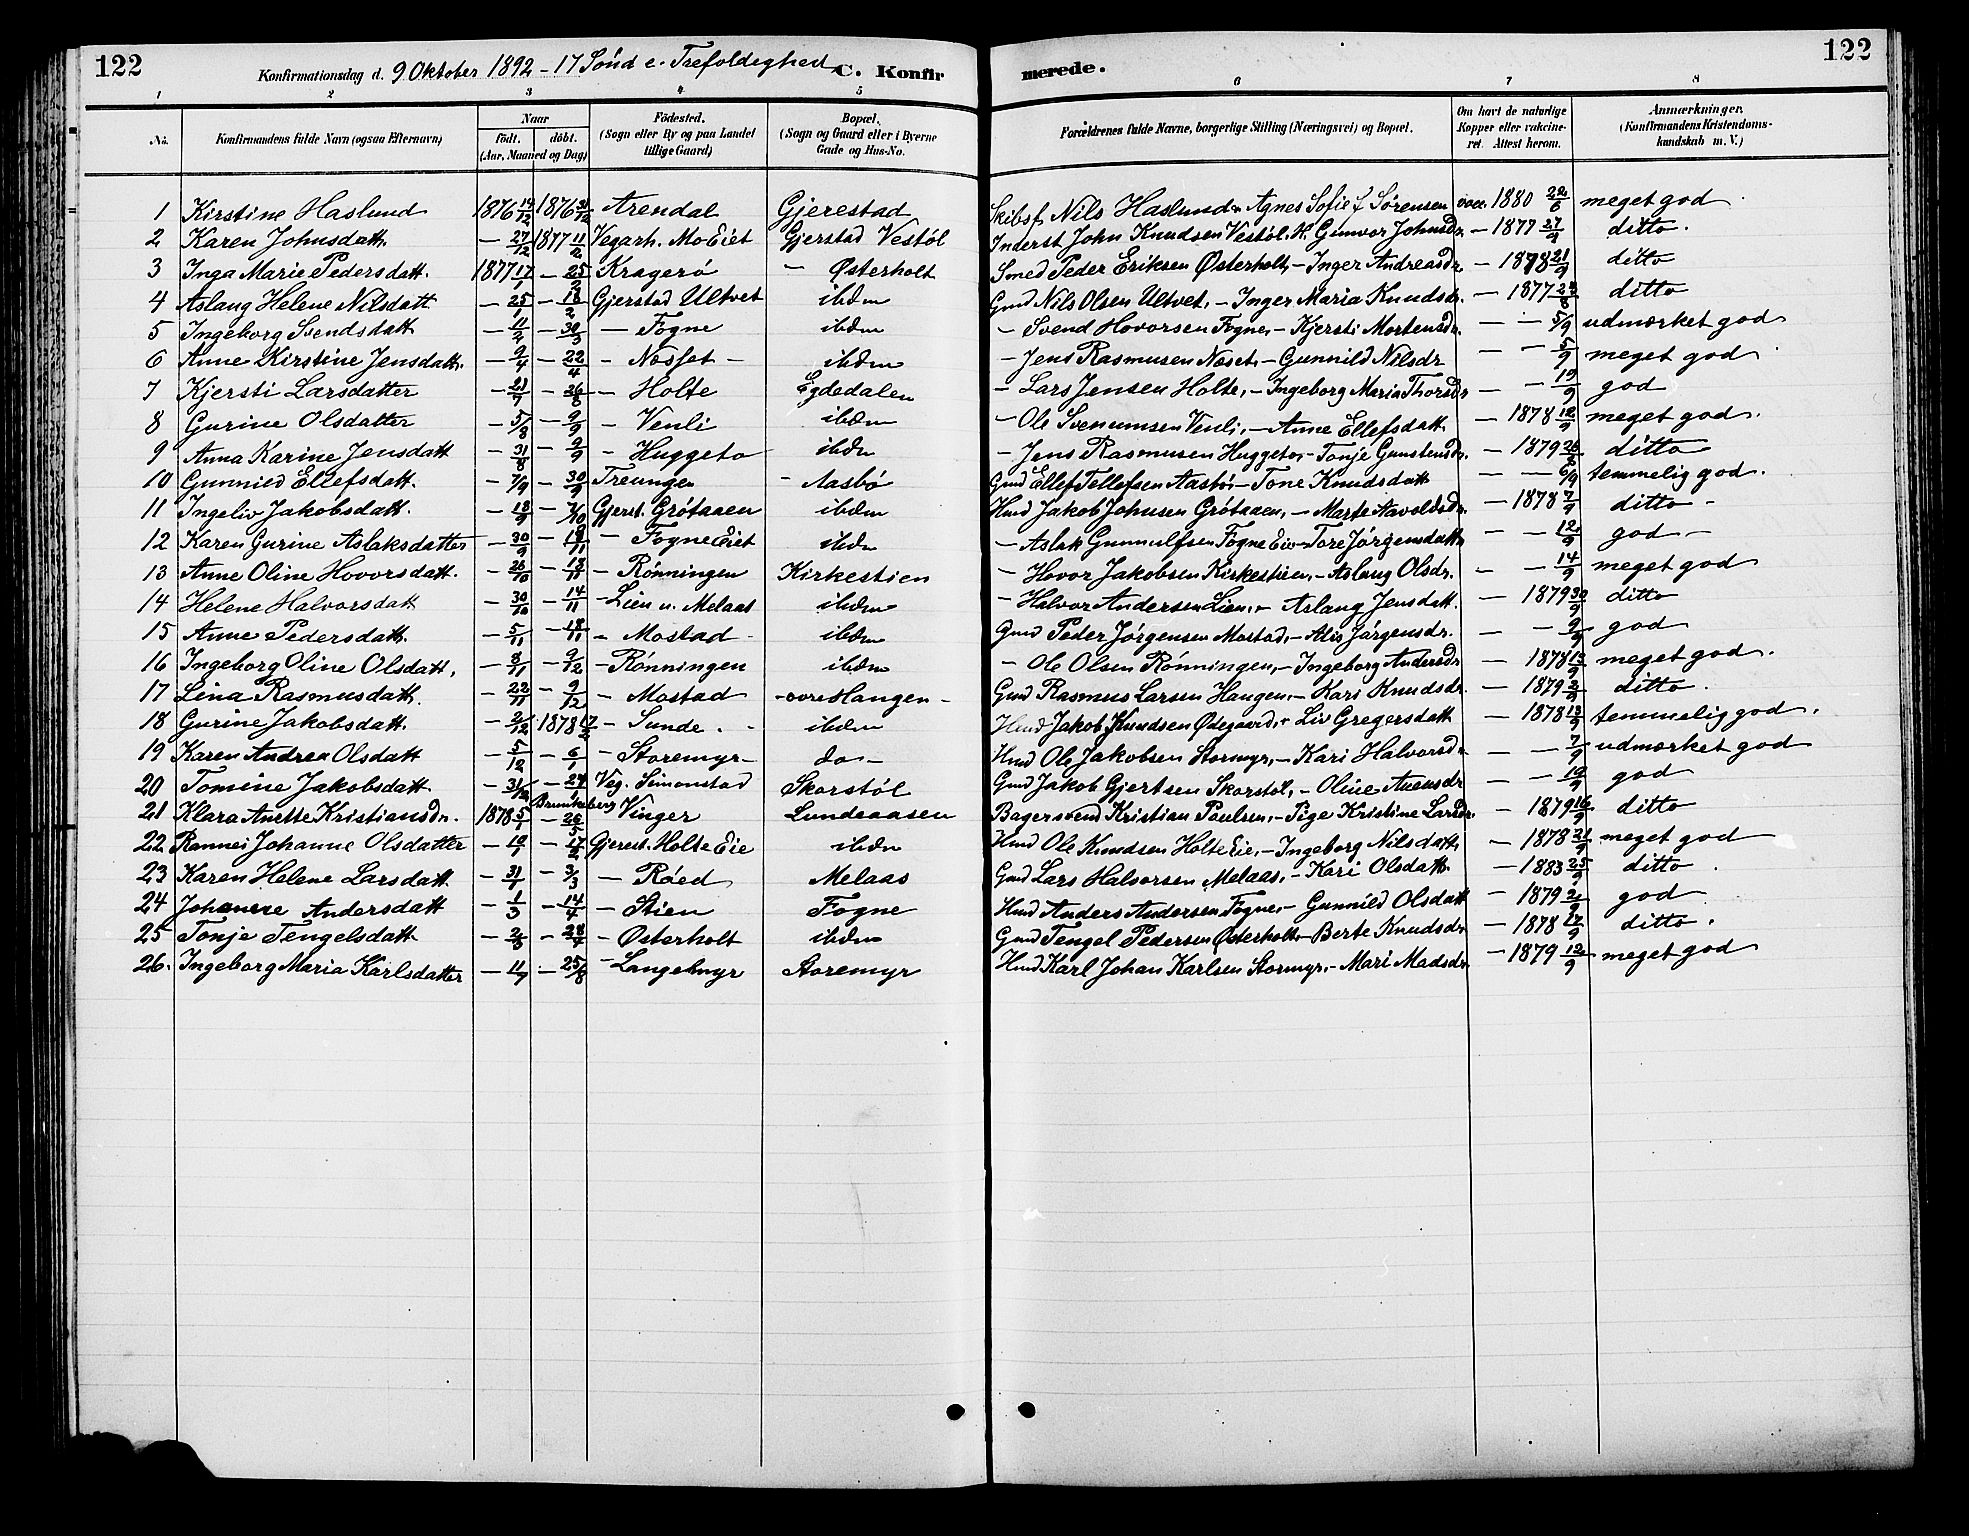 122 Konfirmationsdag d. 9 Oktober 1892 - 17 Sönd e. Trefoldighed C. Konfir merede. 122
1 2 3 4 5 6 7 8
No. Konfirmandens fulde Navn (ogsaa Efternavn) Naar født. døbt. (Aar, Maaned og Dag) Födested. (Sogn eller By og paa Landet tillige Gaard) Bopæl. (Sogn og Gaard eller i Byerne Gade og Hus-No. Forældrenes fulde Navne, borgerlige Stilling (Næringsvei) og Bopæl. Om havt de naturlige Kopper eller vakcineret. Attest herom. Anmærkninger. (Konfirmandens Kristendomskundskab m. V.)
1 Kirstine Haslund 1876 19/12 1876 31/12 Arendal Gjerestad Skibsf. Nils Haslund Agnes Sofie f Sørensen vac. 1880 22/6 meget god
2 Karen Johnsdatt. - 27/12 1877 11/2 Vegarh. Mo Eiet Gjerstad Vestöl Inderst John Knudsen Vestöl. H. Gunvor Johnsdr. - 1877 27/9 ditto.
3 Inga Marie Pedersdatt. 1877 17/1 - 25/2 Kragerö - Østerholt Smed Peder Eriksen Østerholt, - Inger Andreasdr. - 1878 21/9 ditto
4 Aslaug Helene Nilsdatt - 25/1 - 18/2 Gjerstad Ultvet ibdm Gmd Nils Olsen Ultvet, - Inger Maria Knudsdr. - 1877 24/8 ditto
5 Ingeborg Svendsdatt - 11/2 - 30/3 - Fogne ibdm - Svend Hovorsen Fogne, - Kjersti Mortensdr. - - 5/9 udmærket god
6 Anne Kirstine Jensdatt. - 9/4 - 22/4 - Næset - ibdm - Jens Rasmusen Næset, - Gunnild Nilsdr - - 5/9 meget god
7 Kjersti Larsdatter - 21/7 - 26/8 - Holte Egdedalen - Lars Jensen Holte, - Ingeborg Maria Thorsdr - - 19/9 god
8 Gurine Olsdatter - 5/8 - 9/9 - Venli ibdm - Ole Venli, - Anne Ellefsdatt - 1878 12/9 meget god.
9 Anna Karine Jensdatt - 31/8 - 9/9 - Huggeto ibdm - Jens Rasmusen Huggeto, - Tonje Gunstensdr. - 1879 ditto
10 Gunnild Ellefsdatt. - 7/9 - 30/9 Treungen - Aasbö Gmd Ellef Tellefsen Aasbö, - Tone Knudsdatt - - 6/9 temmelig god.
11 Ingeliv Jakobsdatt. - 18/9 - 7/10 Gjerst. Grötaaen ibdm Hmd Jakob Johnsen Grötaaen, - Marte Aavoldsdr. - 1878 7/9 ditto -
12 Karen Gurine Aslaksdatter - 30/9 - 18/11 - Fogne Eiet ibdm - Aslak Gunnulfsen Fogne Eie - Tore Jörgensdatt - - 12/9 god -
13 Anne Oline Hovorsdatt. - 26/10 - 18/11 - Rönningen Kirkestien - Hovor Jakobsen Kirkestien, - Aslaug Olsdr. - - 14/9 meget god
14 Helene Halvorsdatt - 30/10 - 14/11 - Lien u. Melaas ibdm - Halvor Andersen Lien, - Aslaug Jensdatt. - 1879 30/9 ditto
15 Anne Pedersdatt. - 5/11 - 18/11 - Mostad - ibdm Gmd Peder Jörgensen Mostad, - Alis Jörgensdr. - - 9/9 god
16 Ingeborg Oline Olsdatt. - 8/11 - 9/12 - Rönningen ibdm - Ole Olsen Rönningen, - Ingeborg Andersdr - 1878 13/9 meget god.
17 Lina Rasmusdatt. - 22/11 - 9/12 - Mostad - övre Haugen - Gmd Rasmus Larsen Haugen, - Kari Knudsdr. - 1879 2/9 ditto.
18 Gurine Jakobsdatt. - 2/12 1878 - Sunde. - ibdm Hmd Jakob Knudsen Ødegaard, - Liv Gregersdatt - 1878 13/9 temmelig god.
19 Karen Andrea Olsdatt - 5/12 - 6/1 - Storemyr - do - Hmd Ole Jakobsen Stormyr, - Kari Halvorsdr - - 7/9 udmærket god
20 Tomine Jakobsdatt. - 31/12 - 27/1 Veg. Simonstad Skorstöl Gmd Jakob Gjertsen Skorstöl, - Oline - - 19/9 god
21 Klara Anette Kristiansdr. 1878 5/1 Brunkeberg - 26/5 Vinger Lundeaasen Bagersvend Kristian Paulsen, - Pige Kristine Larsdr. - 1879 16/9 ditto
22. Rannei Johanne Olsdatter - 19/1 - 17/2 Gjerest. Holte Eie ibdm Hmd Ole Knudsen Holte Eie, - Ingeborg Nilsdatt. - 1878 21/9 meget god
23 Karen Helene Larsdatt - 31/1 - 3/3 - Röed Melaas Gmd Lars Halvorsen Melaas, - Kari Olsdatt. - 1883 25/9 ditto
24 Johanne Andersdatt - 1/3 - 14/4 - Stien Fogne Hmd Anders Andersen Fogne, - Gunnild Olsdatt - 1879 2/9 god
25 Tonje Tengelsdatt - - 28/4 - Østerholt ibdm Gmd Tengel Pedersen Østerholt, - Berte Knudsdr - 1878 17/9 ditto.
26. Ingeborg Maria Karlsdatter - 11/7 - 25/8 - Langebmyr Storemyr Hmd Karl Johan Karlsen Stormyr, - Mari Madsdr. - 1879 12/9 meget god